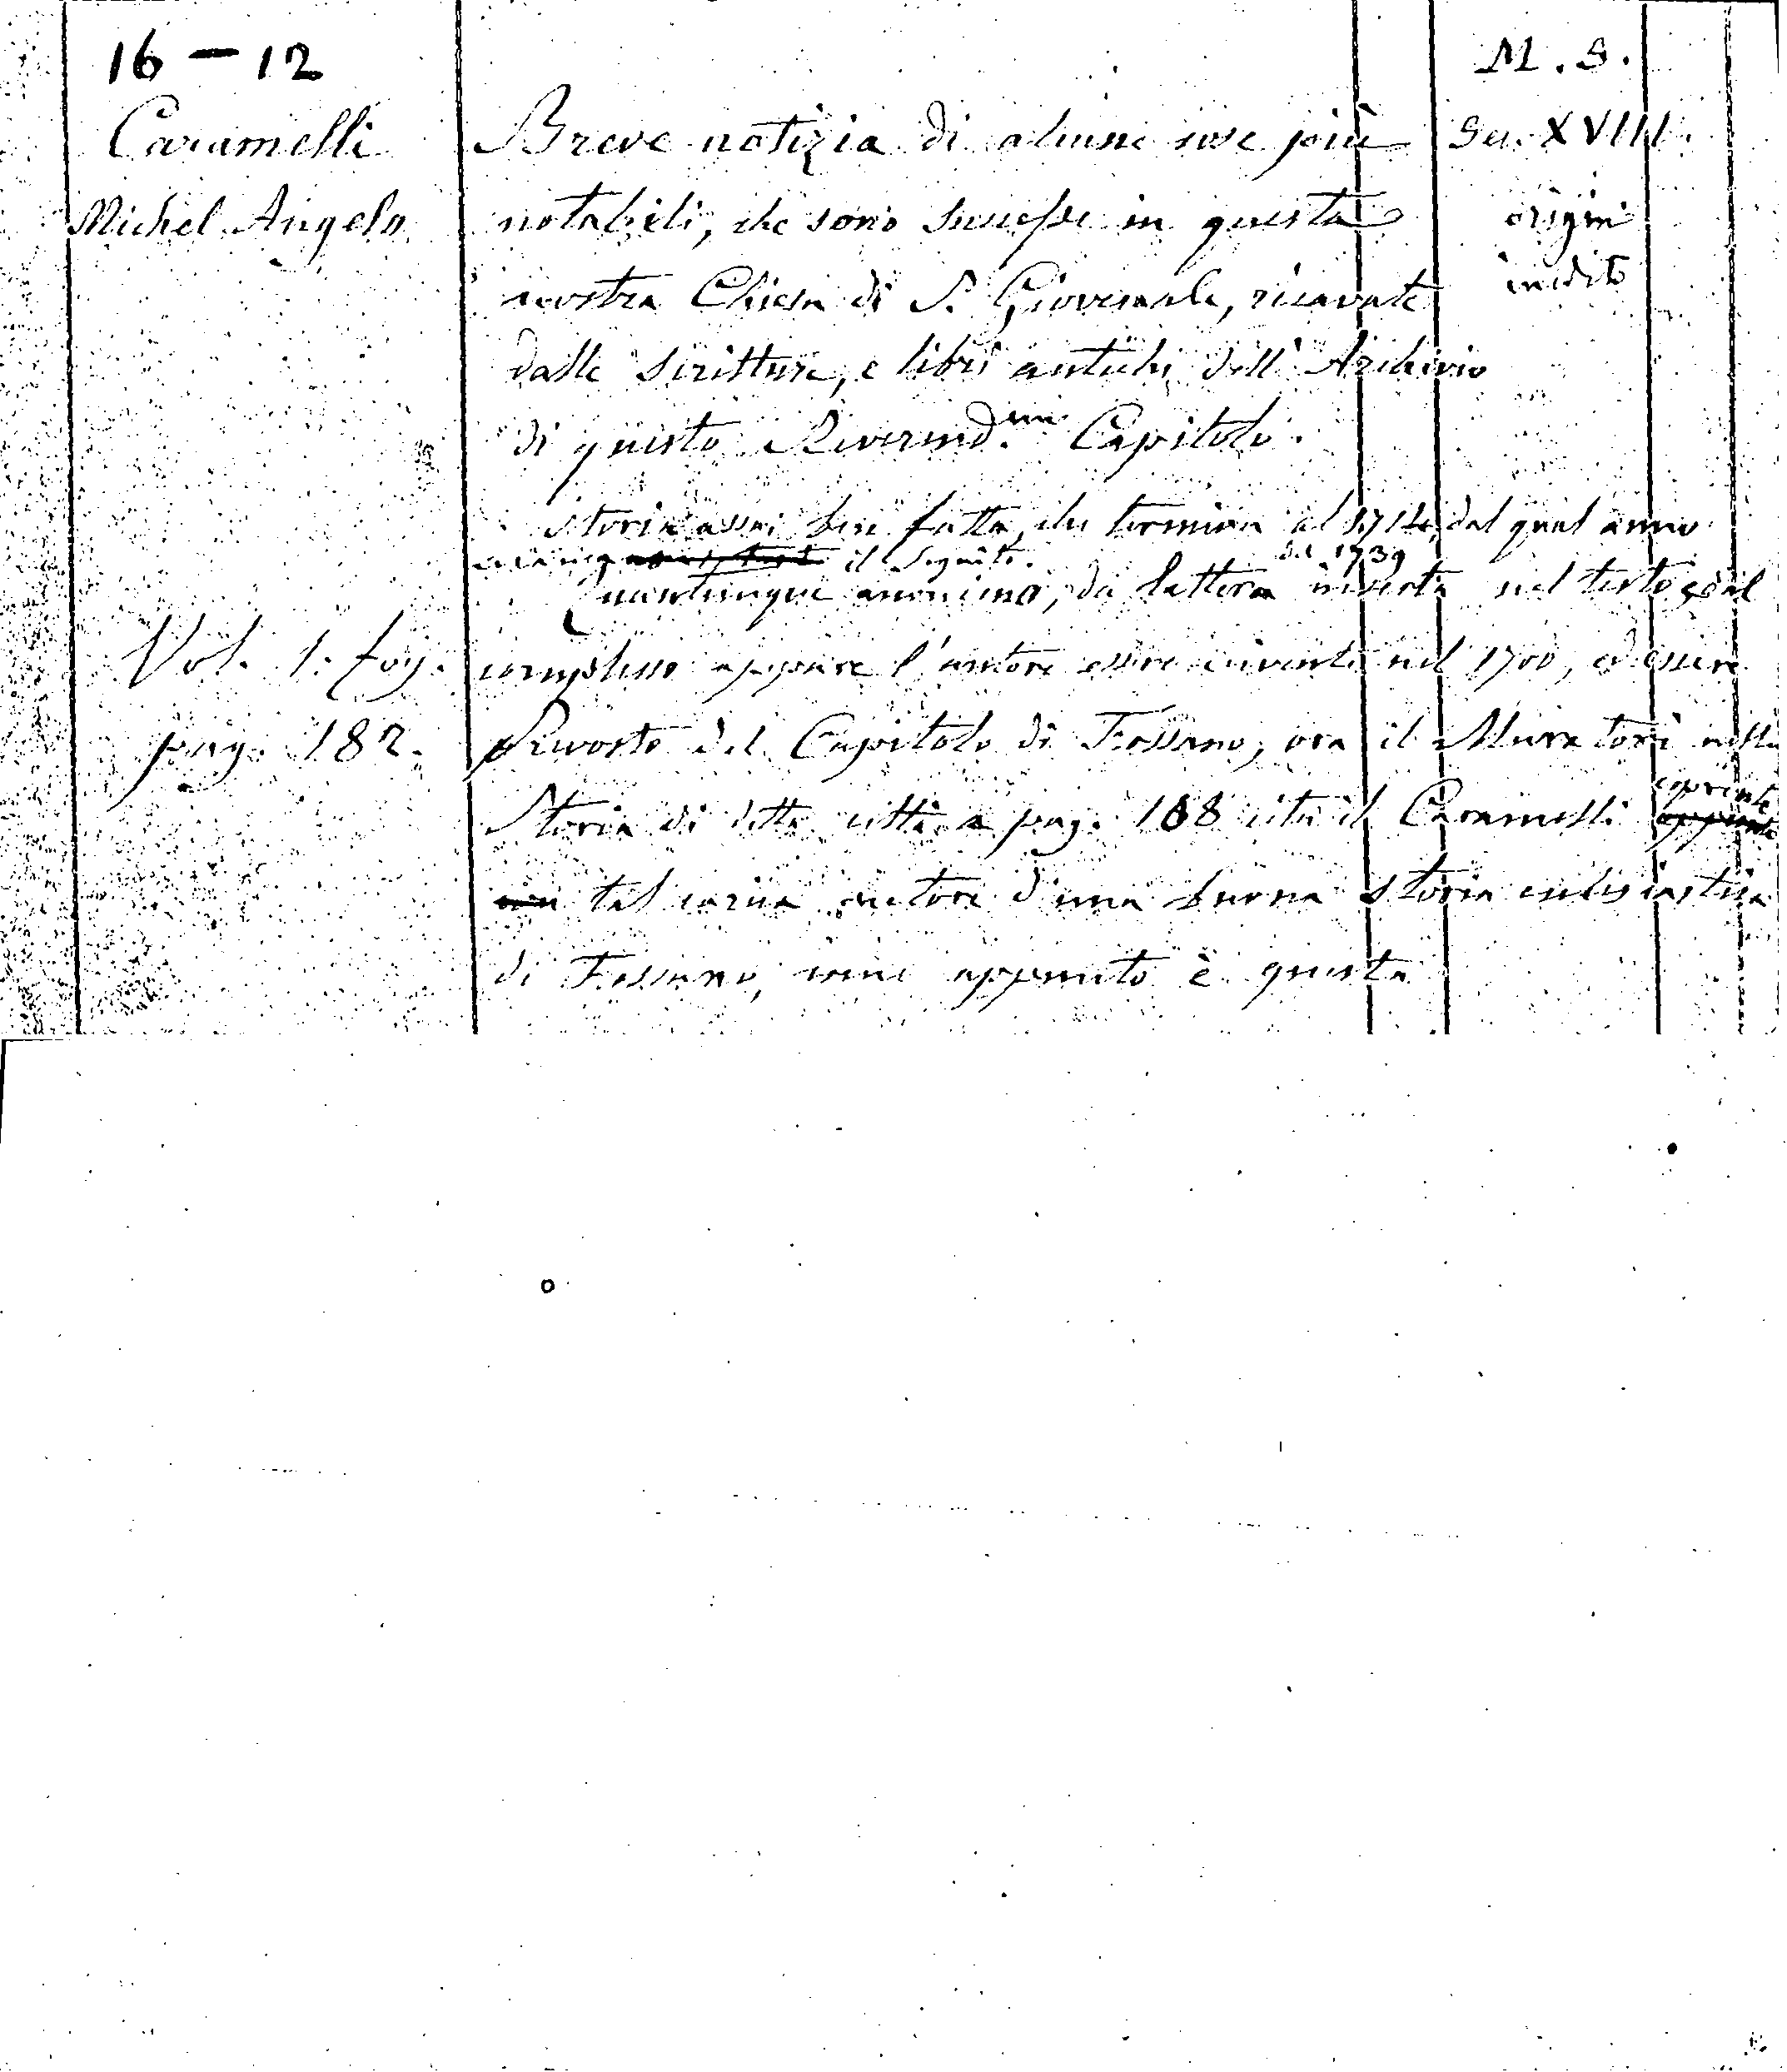 16 - 12
M. S.
Caramelli
Breve notizia di alcune cose più
Sec. XVIII.
Michel Angelo
notabili, che sono successe in questa
origin.
nostra Chiesa di S. Giovenale, ricavate
inedito
dalle scritture, e libri antichi dell'Archivio
di questo Reverend.mo Capitolo.
Storia assai ben fatta, che termina al 1714, dal qual anno
il seguito.
del 1739
Quantunque anonima, da lettera inserta nel testo
Vol. 1. fog.
complesso appare l'autore essere vivente nel 1700, ed essere
pag. 182.
Prevosto del Capitolo di Fossano, ora il Muratori nella
Storia di detta città a pag. 108 cita il Caramelli coprente
tal carica autore d'una buona Storia ecclesiastica
di Fossano, come appunto è questa